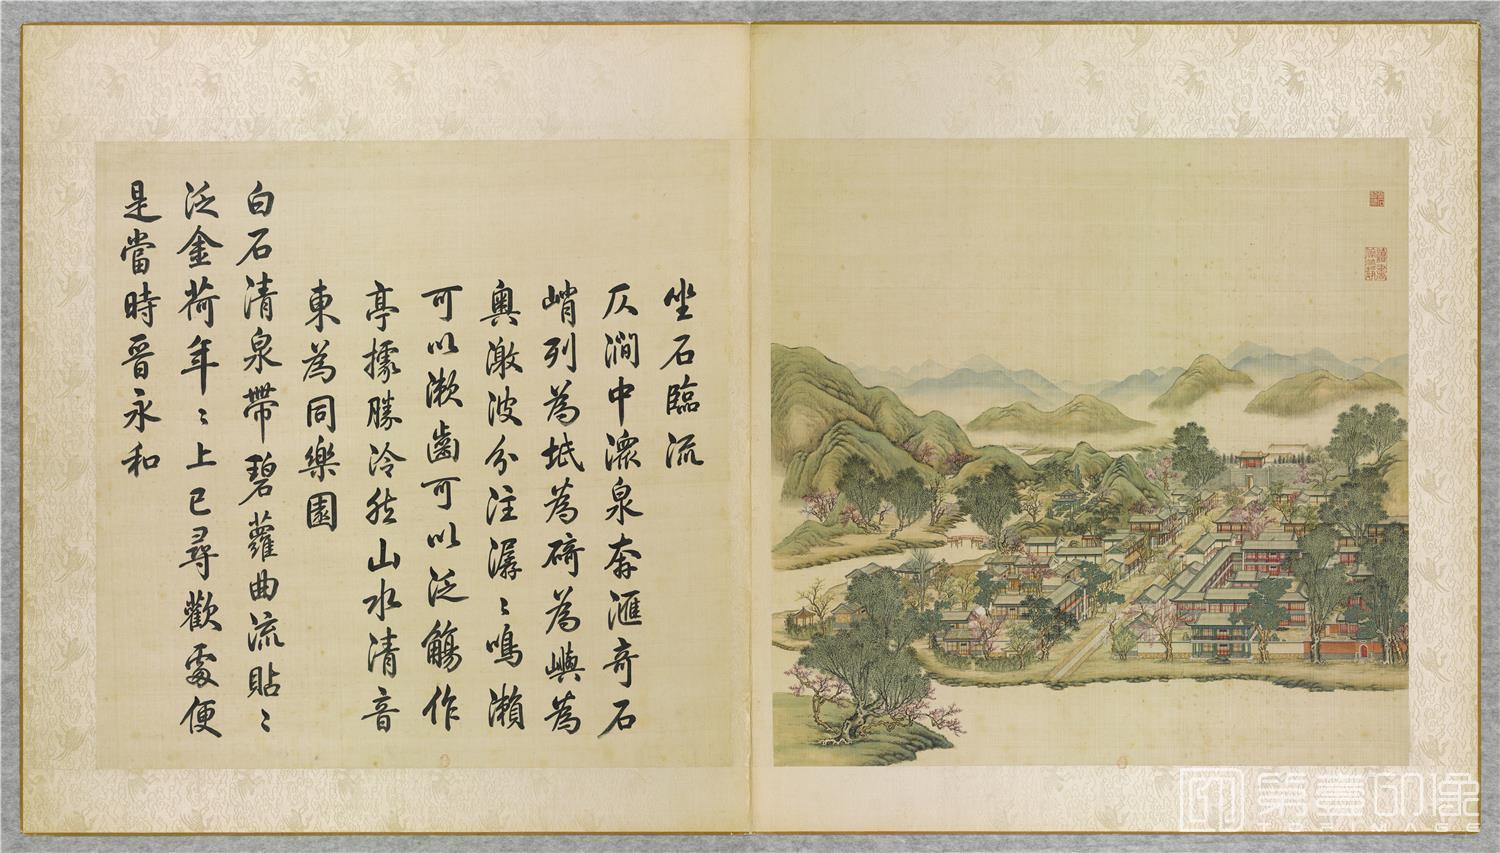 坐石臨流
仄澗中瀠泉奔滙奇石
峭列為坻為碕為嶼為
奧激波分注潺〻鳴瀨
可以漱齒可以泛觴作
亭據勝泠然山水清音
東為同樂園
白石清泉帶碧蘿曲流貼〻
泛金荷年〻上巳尋歡處便
是當時晉永和
第壹印像